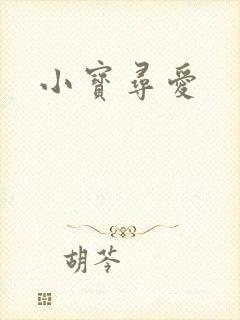 小寶尋愛
胡苓